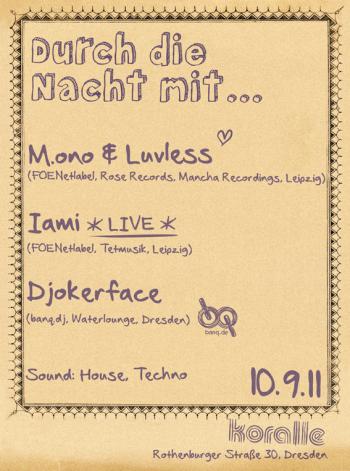 Durch die
Nacht mit...
M.ono & Luvless
(FOENetlabel, Rose Records, Mancha Recordings, Leipzig)
Iami * LIVE *
(FOENetlabel, Tetmusik, Leipzig)
Djokerface
(banq.dj, Waterlounge, Dresden)
banq.de
Sound: House, Techno
10.9.11
koralle
Rothenburger Straße 30, Dresden